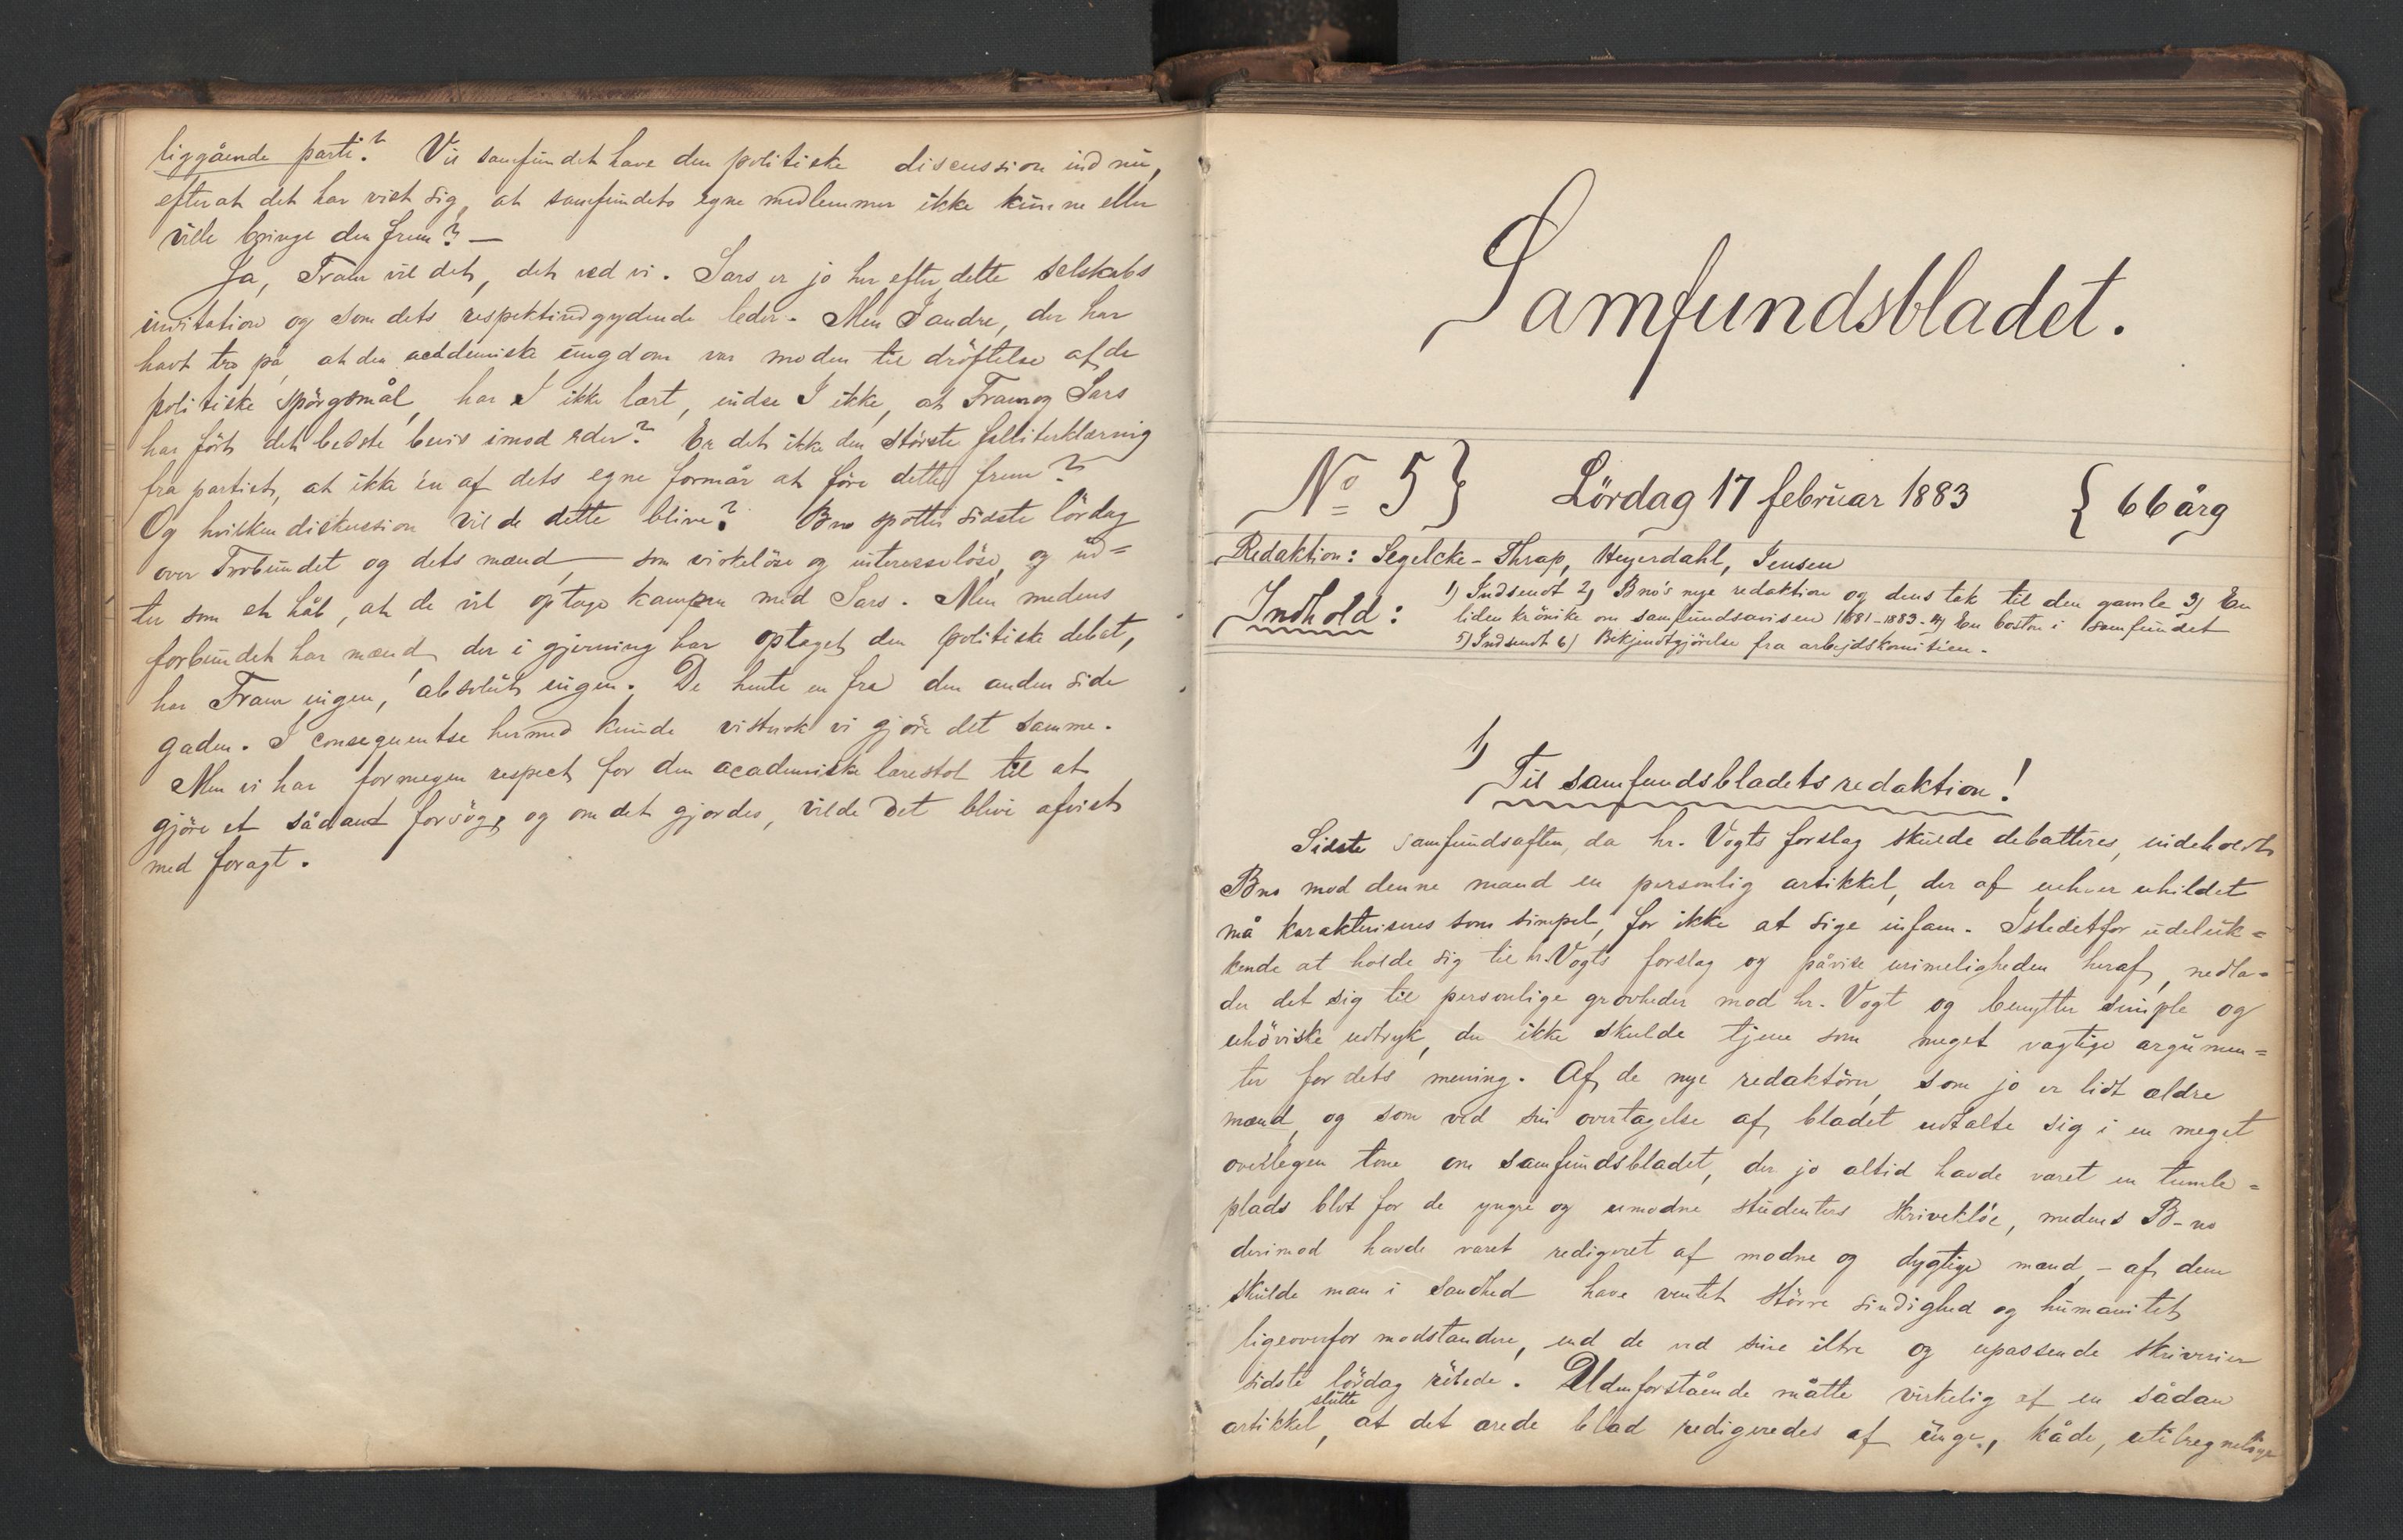 liggående parti? Vil samfundet have den politiske discussion ind nu,
efterat det har vist sig, at samfundets egne medlemmer ikke kunne eller
vilde bringe den frem? —
Ja, Fram vil det, det ved vi. Sars er jo her efter dette selskabs
invitation og som dets respektindgydende leder. Men I andre, der har
havt tro på, at den academiske ungdom var moden til dröftelse af de
politiske spörgsmål, har I ikke lært, indse I ikke, at Fram og Sars
har fört det bedste bevis imod eder? Er det ikke den störste falliterklæring
fra partiet, at ikke én af dets egne formår at före dette frem?
Og hvilken diskussion vilde dette blive? Bno spotter sidste lördag
over Forbundet og dets mænd — som virkelöse og interesselöse, og ud=
ter som et håb, at de vil optage kampen med Sars. Men medens
forbundet har mænd, der i gjerning har optaget den politiske debat,
har Fram ingen, absolut ingen. De hente en fra den anden side
gaden. I consequentse hermed kunde vistnok vi gjöre det samme.
Men vi har formegen respect for den academiske lærestol til at
gjöre et sådant forsög, og om det gjordes, vilde det blive afvist
med foragt.
Samfundsbladet.
No 5} Lördag 17 februar 1883 {66 årg
Redaktion: Segelcke-Thrap, Heyerdahl, Jensen
Indhold: 1) Indsendt 2) Bno's nye redaktion og dens tak til den gamle 3) En
liden krönike om samfundsavisen 1881-1883. 4) En boston i samfundet
5) Indsendt 6) Bekjendtgjörelse fra arbejdskomiteen.
1)
Til samfundsbladets redaktion!
Sidste samfundsaften, da hr. Vogts forslag skulde debatteres, indeholdt
Bno mod denne mand en personlig artikkel, der af enhver uhildet
må karakteriseres som simpel, for ikke at sige infam. Istedetfor udeluk=
kende at holde sig til hr. Vogts forslag og påvise urimeligheden heraf, nedla=
der det sig til personlige grovheder mod hr. Vogt og benytter simple og
uhöviske udtryk, der ikke skulde tjene som meget vægtige argumen=
ter for dets mening. Af de nye redaktörer, som jo er lidt ældre
mænd, og som ved sin overtagelse af bladet udtalte sig i en meget
overlegen tone om samfundsbladet, der jo altid havde været en tumle=
plads blot for de yngre og umodne studenters skriveklöe, medens B-no
derimod havde været redigeret af modne og dygtige mænd, - af dem
skulde man i sandhed have ventet större sindighed og humanitet
ligeoverfor modstandere, end de ved sine iltre og upassende skriverier
sidste lördag röbede. Udenforstående måtte virkelig af en sådan
artikkel slutte, at det ærede blad redigeredes af unge, kåde, utilregnelige